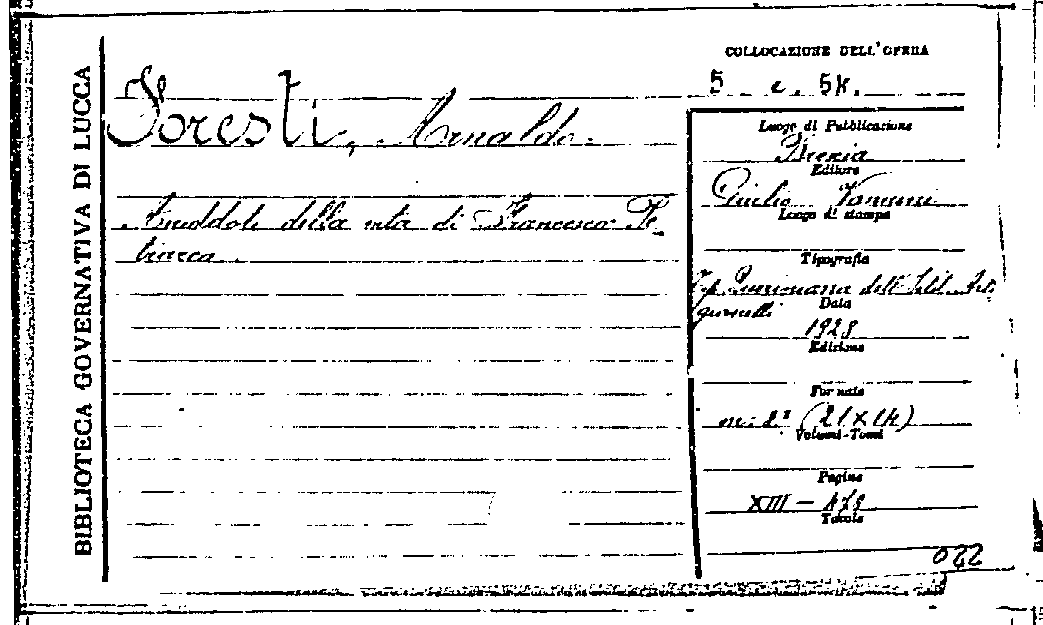 BIBLIOTECA GOVERNATIVA DI LUCCA
COLLOCAZIONE DELL'OPERA
5 c. 54.
Foresti, Arnaldo.
Aneddoti della vita di Francesco Pe-
trarca.
Luogo di Pubblicazione
Brescia
Editore
Giulio Vannini
Luogo di stampa
Tipografia
Tip. Queriniana dell' Istit. Arti-
gianelli
Data
1928
Edizione
Formato
in-8° (21 x 14)
Volumi-Tomi
Pagine
XIII - 479
Tavole
022